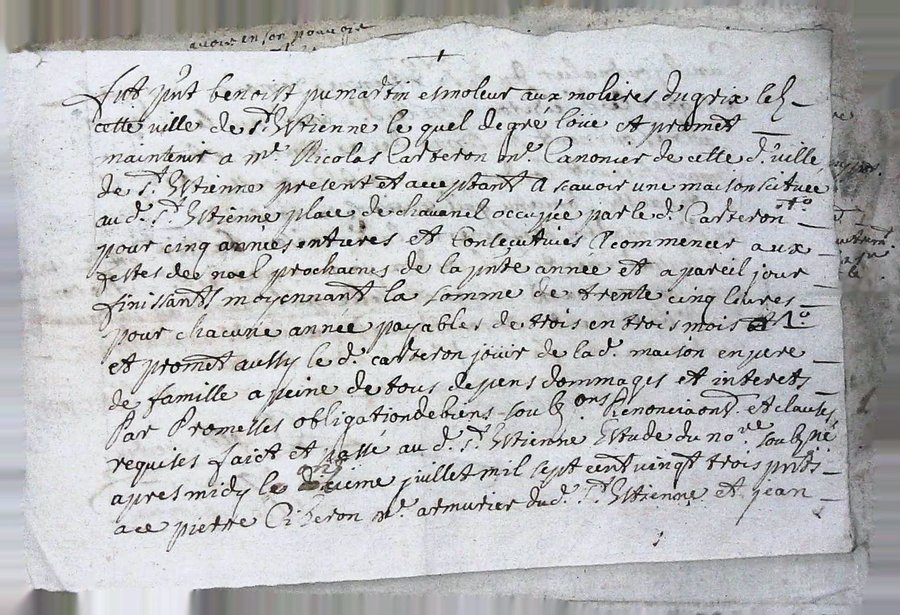 avoir en son pouvoir
+
Fut pnt benoist pumartin esmoleur aux molieres du grix lez
cette ville de st Estienne le quel de gré loue et promet
maintenir a me Nicolas Carteron me Canonier de cette d. ville
de st Estienne present et acceptant A scavoir une maison scituée
au d. st Estienne place de chavanel occupée par le d. Carteron
pour cinq années entieres et Consecutives A commencer aux
festes de noel prochaines de la pnte année et a pareil jour
finissants moyennant la somme de trente cinq livres
pour chacune année payables de trois en trois mois
et promet aussy le d. carteron jouir de la d. maison en pere
de famille a peine de tous depens dommages et interets
Par Promesses obligation de biens soubons Renonciaons et clauses
requises faict et passé au d. st Estienne Estude du nore soubné
apres midy le juillet mil sept cent vingt trois pnts
ace pierre me armurier du d. st Estienne et jean